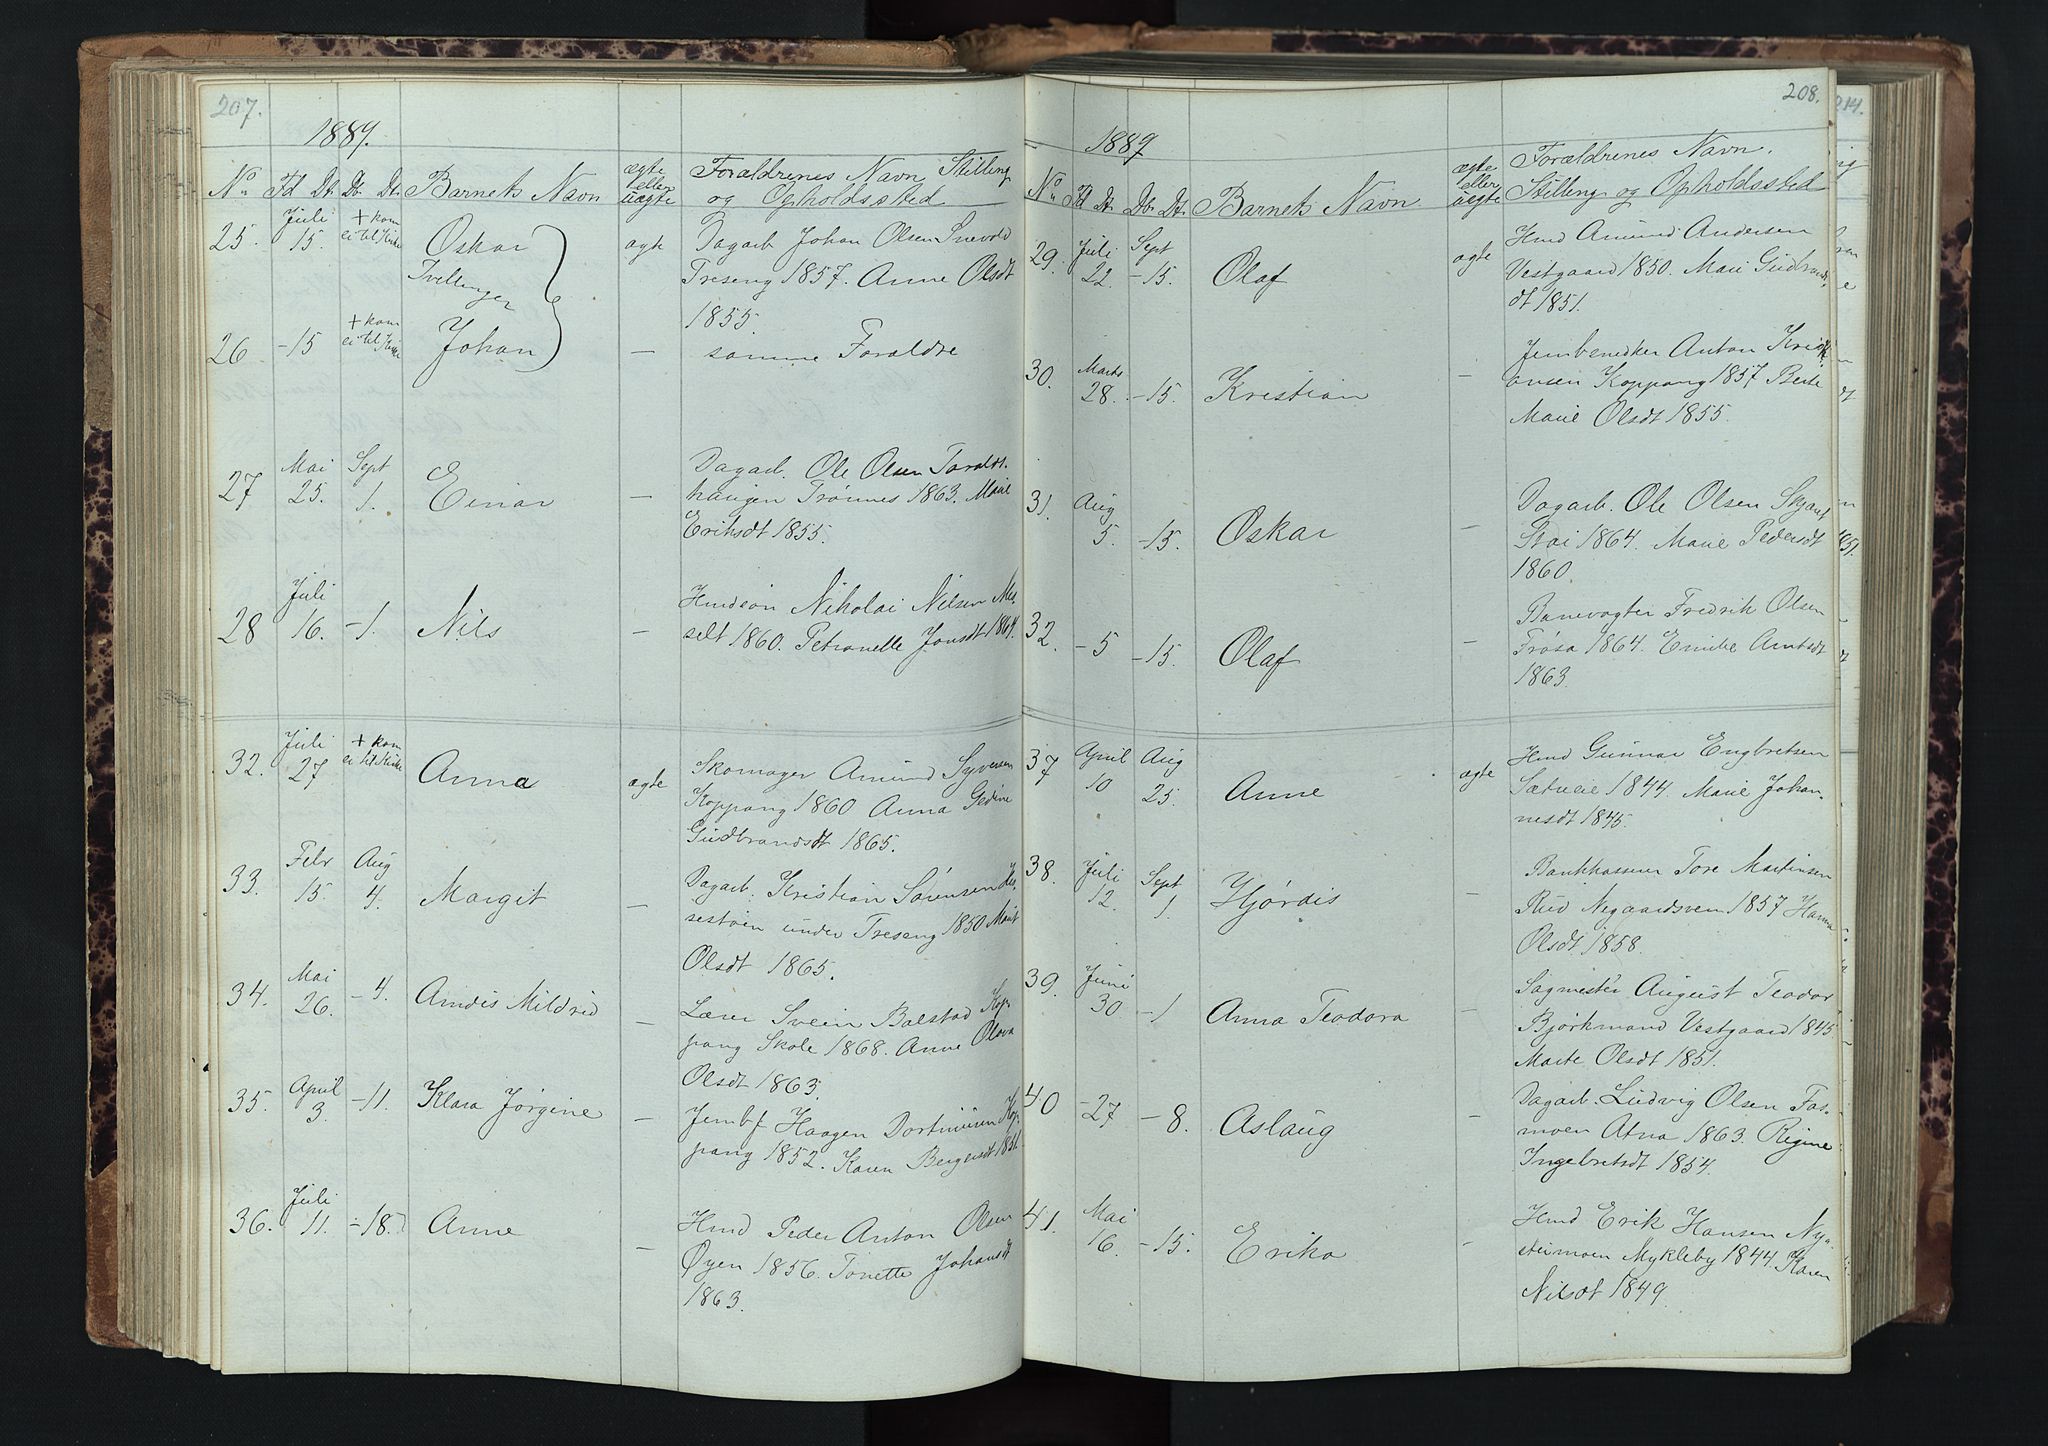 207.
1889.
No Fd Dt. Db. Dt. Barnets Navn ægte eller uægte Forældrenes Navn Stilling
og Opholdssted
25. Juli 15. + kom ei til Kirke Oskar ægte Dagarb Johan Olsen Snevold
Tvillinger Treseng 1857. Anne Olsdt
1855.
26 -15 + kom ei til Kirke Johan — samme Forældre
27 Mai 25. Sept 1. Einar — Dagarb. Ole Olsen Toralds-
haugen Trønnes 1863. Marie
Eriksdt 1855.
28 Juli 16. -1. Nils — Hmdsøn Nikolai Nilsen Mes-
selt 1860. Petronelle Jonsdt 1864.
32. Juli 27 + kom ei til Kirke Anna ægte Skomager Amund Syversen
Koppang 1860 Anna Gedine
Gudbrandsdt 1865.
33. Febr 15. Aug 4. Margit — Dagarb. Kristian Sørensen
sestøen under Treseng 1850 Marit
Olsdt 1865.
34. Mai 26. -4. Arndis Mildrid — Lærer Svein Bolstad Kop-
pang Skole 1868. Anne Olava
Olsdt 1863.
35. April 3. -11. Klara Jørgine — Jernbf Haagen Dortmusen Kop-
pang 1852. Karen Bergersdt 1851.
36. Juli 11. -18. Anne — Hmd Peder Anton Olsen
Øyen 1856. Tonette Johansdt
1863.
208.
1889
No Fd Dt. Db. Dt. Barnets Navn ægte eller uægte Forældrenes Navn.
Stilling og Opholdssted
29. Juli 22. Sept -15. Olaf ægte Hmd Amund Andersen
Vestgaard 1850. Mari Gudbrands-
dt 1851.
30. Marts 28. -15. Kristian — Jernbsnedker Anton Kristi-
ansen Koppang 1857 Berte
Marie Olsdt 1855.
31. Aug 5. -15. Oskar — Dagarb. Ole Olsen Skjæret
Stai 1864. Marie Pedersdt
1860.
32. -5 -15. Olaf — Banevogter Fredrik Olsen
Trøsa 1864. Emilie Arntsdt
1863.
37 April 10 Aug 25. Anne ægte Hmd Gunnar Engbretsen
Sætreeie 1844. Marie Johan-
nesdt 1845.
38. Juli 12. Sept 1. Hjørdis — Bankkasserer Tore Martinsen
Rud Negaardsvem 1857 Hanna
Olsdt. 1858.
39. Juni 30. -1 Anna Teodora — Sagmester August Teodor
Bjørkmand Vestgaard 1845
Marte Olsdt 1851.
40 -27 -8. Aslaug — Dagarb. Ludvig Olsen Fos-
moen Atna 1863. Regine
Ingebretsdt 1854.
41. Mai 16. -15. Erika — Hmd Erik Hansen Ny-
steimoen Mykleby 1844. Karen
Nilsdt 1849.
214.